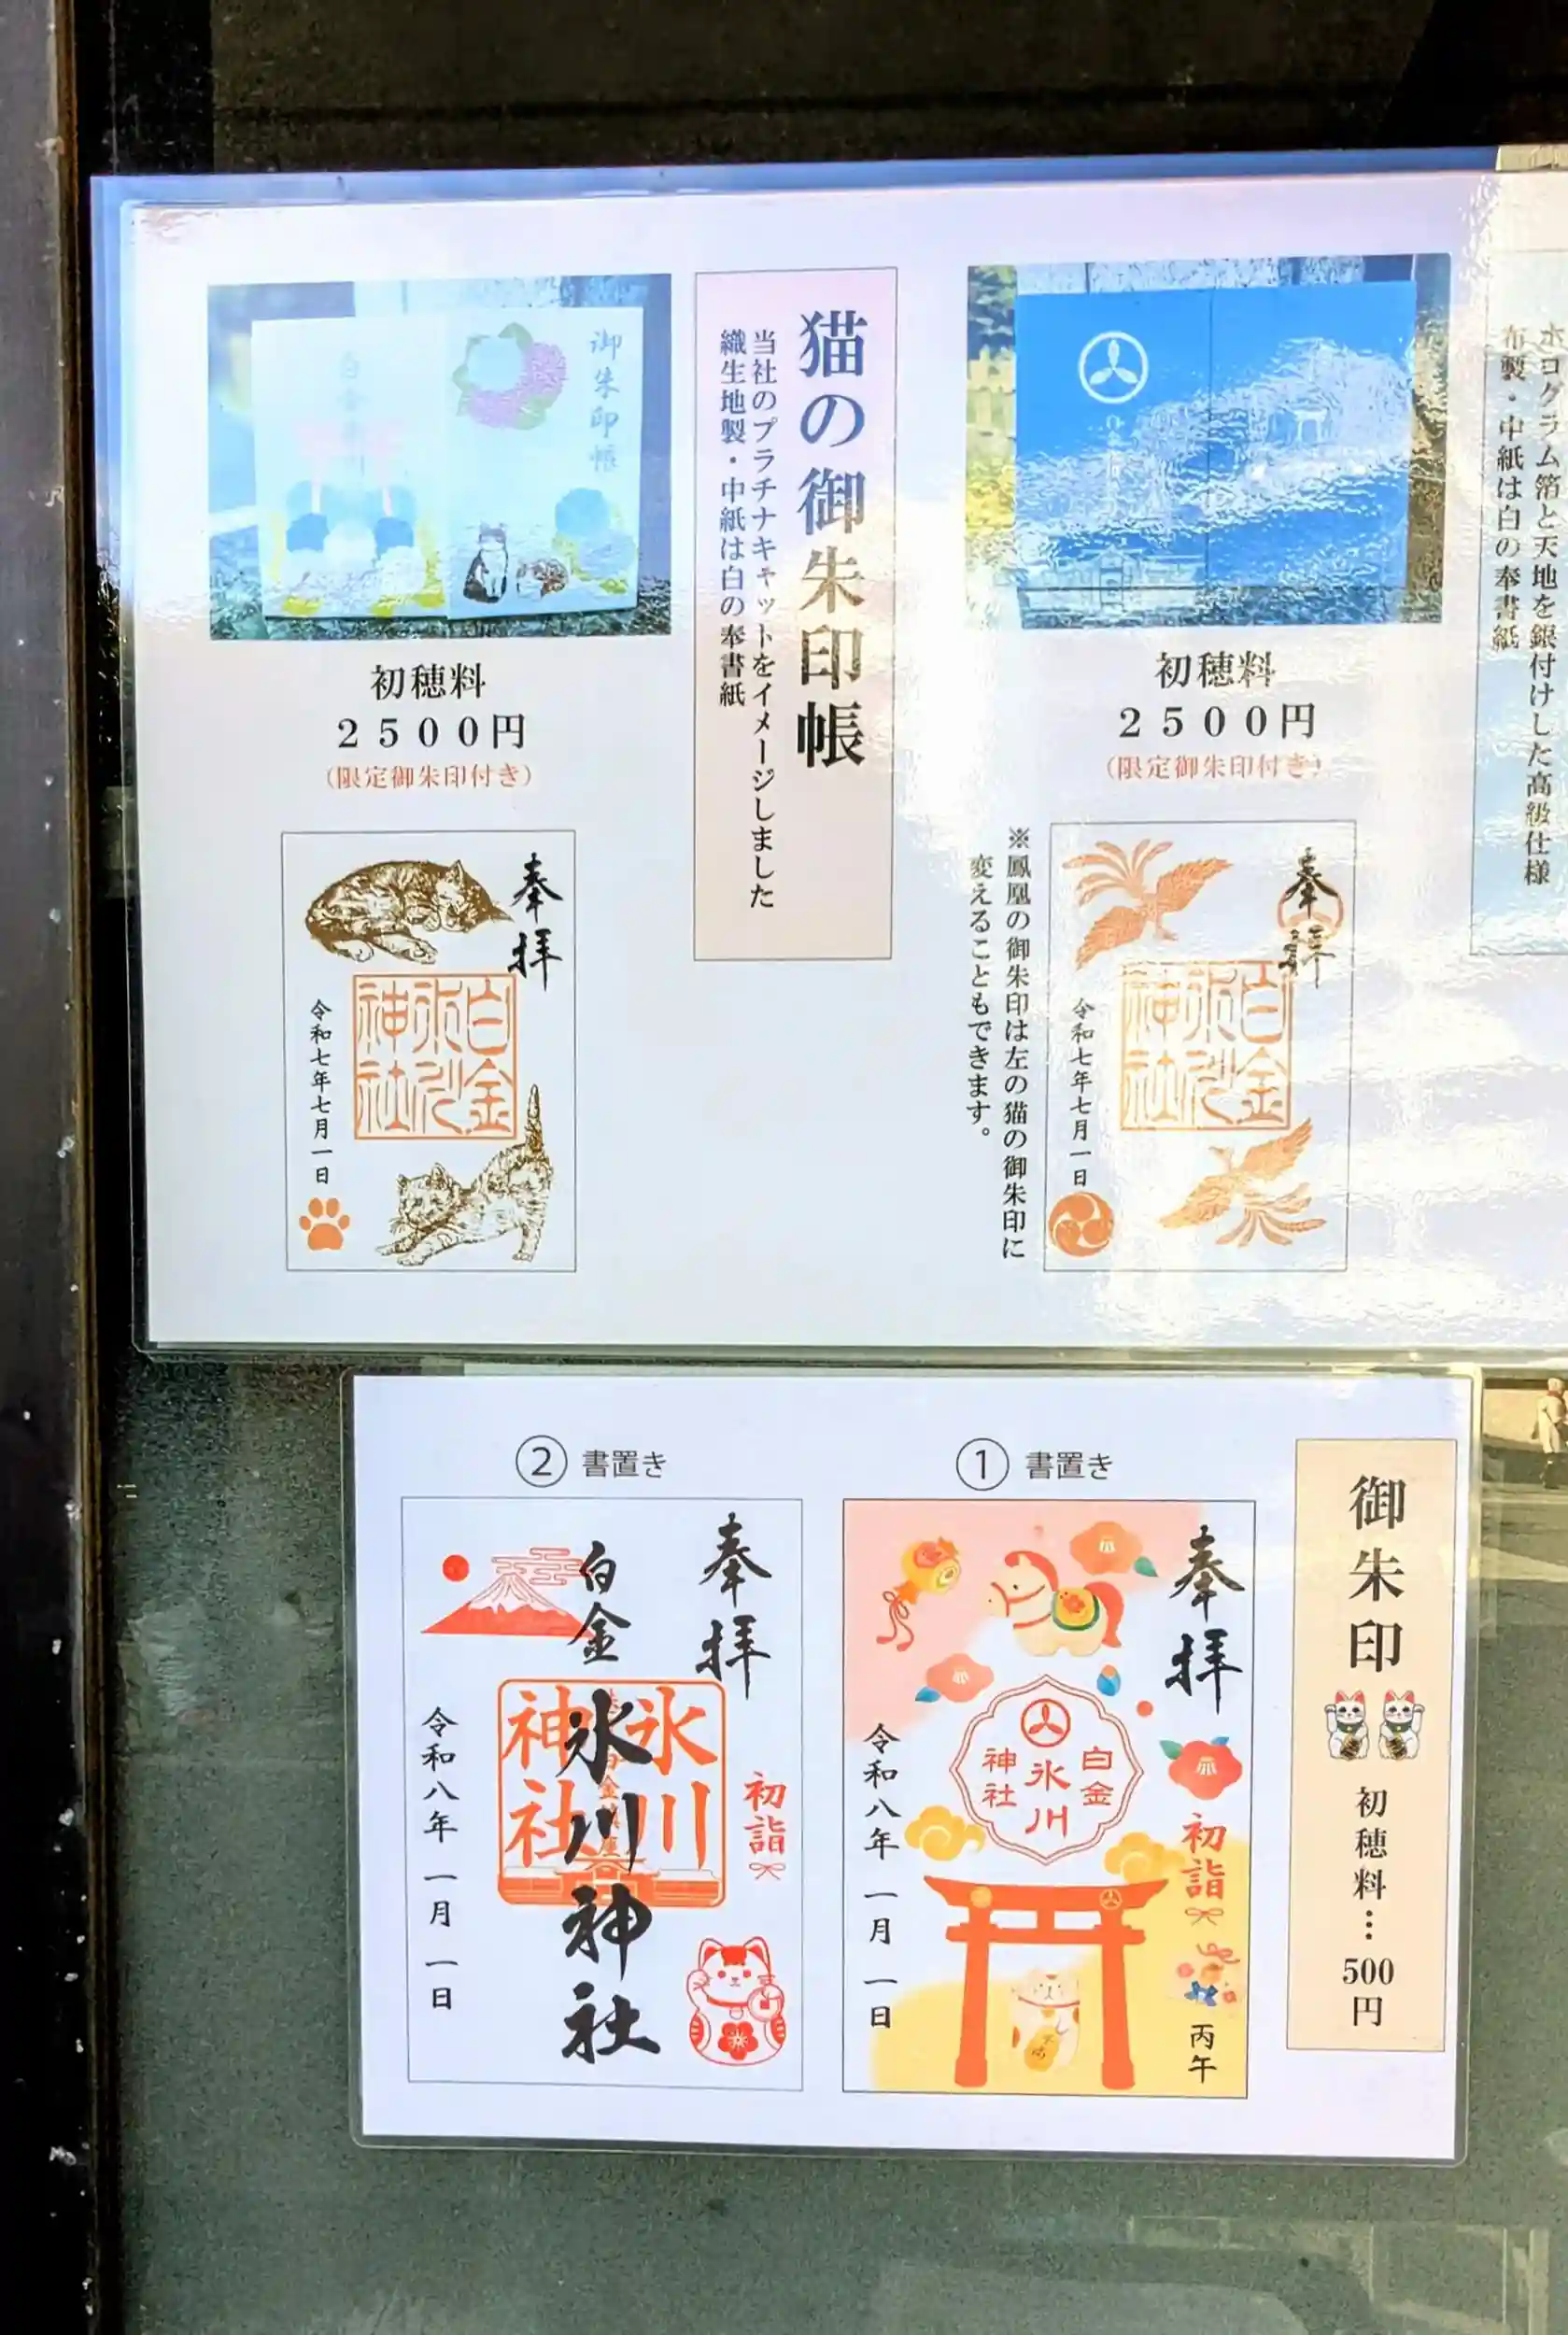 ホログラム箔と天地を銀付けした高級仕様
布製・中紙は白の奉書紙
初穂料
2500円
(限定御朱印付き)
奉拝
白金
氷川
神社
令和七年七月一日
※鳳凰の御朱印は左の猫の御朱印に
変えることもできます。
猫の御朱印帳
当社のプラチナキャットをイメージしました
織生地製・中紙は白の奉書紙
御朱印帳
初穂料
2500円
(限定御朱印付き)
奉拝
白金
氷川
神社
令和七年七月一日
御朱印
初穂料…500円
① 書置き
奉拝
初詣
丙午
白金
氷川
神社
令和八年一月一日
② 書置き
奉拝
初詣
白金氷川神社
氷川
神社
令和八年一月一日